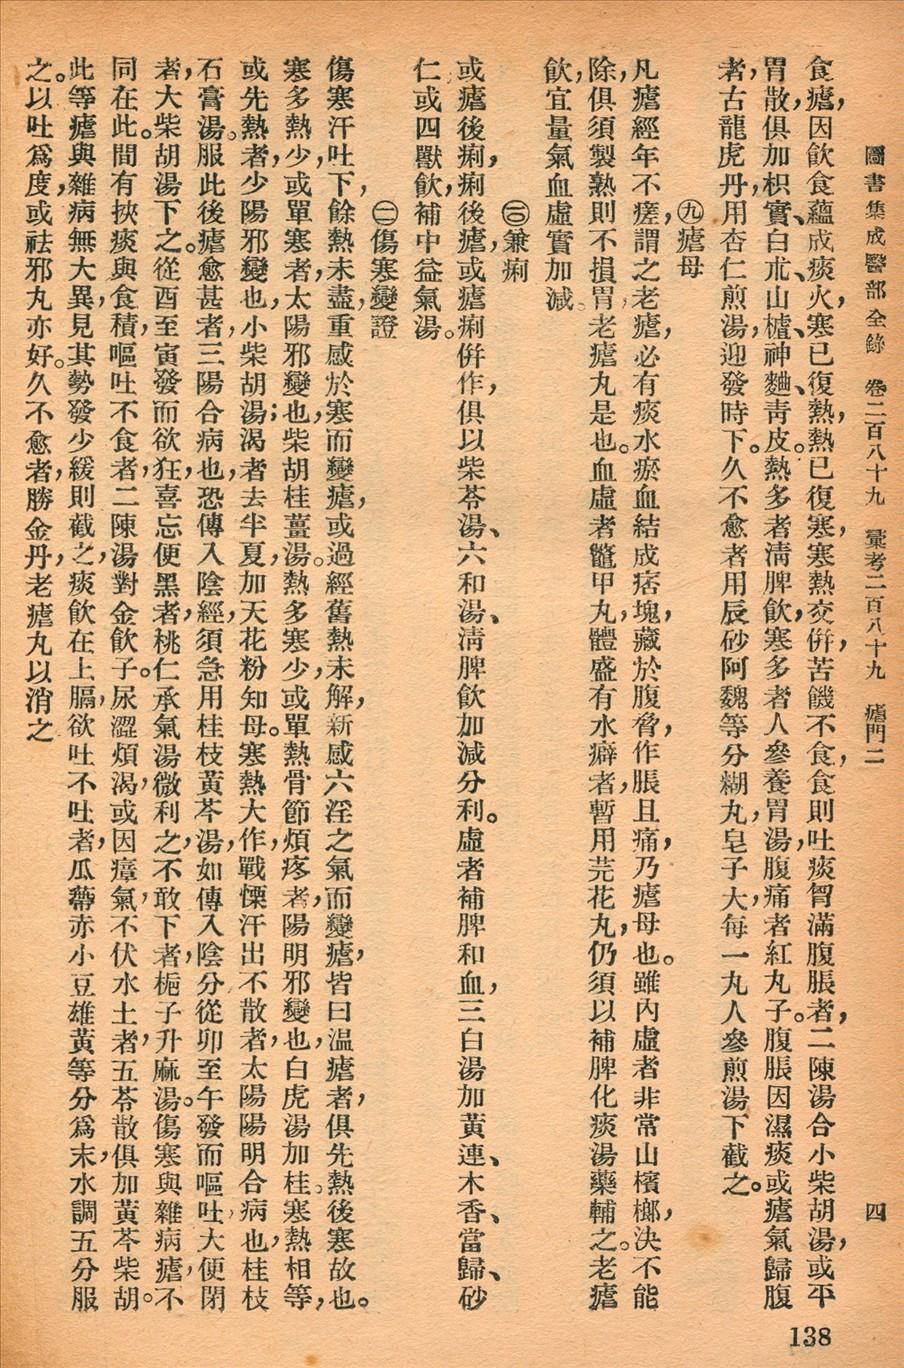 圖書集成醫部全錄　卷二百八十九　彙考二百八十九　瘧門二　四
食瘧，因飲食蘊成痰火，寒已復熱，熱已復寒，寒熱交併，苦饑不食，食則吐痰胷滿腹脹者，二陳湯合小柴胡湯，或平
胃散，俱加枳實、白朮、山樝、神麯、靑皮。熱多者淸脾飲，寒多者人參養胃湯，腹痛者紅丸子。腹脹因濕痰或瘧氣歸腹
者，古龍虎丹，用杏仁煎湯，迎發時下。久不愈者用辰砂阿魏等分糊丸，皂子大，每一丸人參煎湯下截之。
㊈瘧母
凡瘧經年不瘥，謂之老瘧，必有痰水瘀血結成痞塊，藏於腹脅，作脹且痛，乃瘧母也。雖內虛者非常山檳榔，決不能
除，俱須製熟則不損胃，老瘧丸是也。血虛者鼈甲丸，體盛有水癖者，暫用芫花丸，仍須以補脾化痰湯藥輔之。老瘧
飲，宜量氣血虛實加減。
㊂兼痢
或瘧後痢，痢後瘧，或瘧痢併作，俱以柴苓湯、六和湯、淸脾飲加減分利。虛者補脾和血，三白湯加黃連、木香、當歸、砂
仁或四獸飲，補中益氣湯。
㊁傷寒變證
傷寒汗吐下，餘熱未盡，重感於寒而變瘧，或過經舊熱未解，新感六淫之氣而變瘧，皆曰溫瘧者，俱先熱後寒故也。
寒多熱少，或單寒者，太陽邪變也，柴胡桂薑湯。熱多寒少，或單熱骨節煩疼者，陽明邪變也，白虎湯加桂。寒熱相等，
或先熱者，少陽邪變也，小柴胡湯；渴者去半夏，加天花粉知母。寒熱大作，戰慄汗出不散者，太陽陽明合病也，桂枝
石膏湯。服此後瘧愈甚者，三陽合病也，恐傳入陰經，須急用桂枝黃芩湯，如傳入陰分從卯至午發而嘔吐，大便閉
者，大柴胡湯下之。從酉至寅發而欲狂，喜忘便黑者，桃仁承氣湯微利之，不敢下者，梔子升麻湯。傷寒與雜病瘧，不
同在此。間有挾痰與食積，嘔吐不食者，二陳湯對金飲子。尿澀煩渴，或因瘴氣，不伏水土者，五苓散，俱加黃芩柴胡。
此等瘧與雜病無大異，見其勢發少緩則截之，痰飲在上膈，欲吐不吐者，瓜蔕赤小豆雄黃等分爲末，水調五分服
之。以吐爲度，或祛邪丸亦好。久不愈者，勝金丹，老瘧丸以消之
138